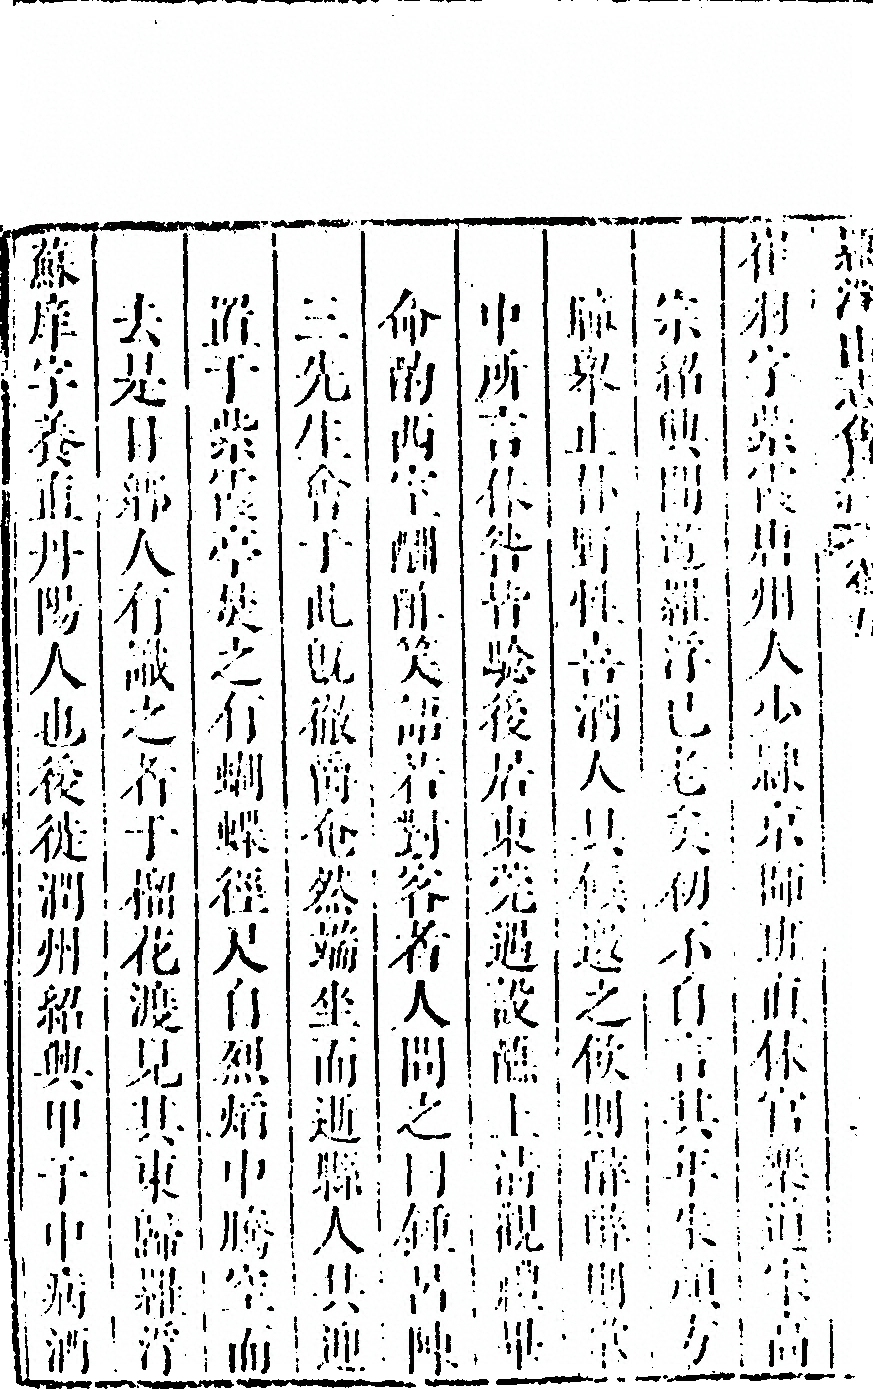 羅浮山志會編 卷五
崔羽字紫霞唐州人少隸京師班直休官樂道宋高
宗紹興間遊羅浮已老矣初不自言其年朱顏方
瞳舉止朴野性喜酒人具候邀之則醉醉則
中所言休咎皆驗後居東莞遇設醮上清觀禮畢
命酌西室酬酢笑語若對客者人問之曰鍾呂陳
三先生會于此既徹爵奄然端坐而逝縣人共迎
置于紫霞亭焚之有蝴蝶徑尺自烈焰中騰空而
去是日鄉人有識之者于榴花渡見其東歸羅浮
蘇庠字養直丹陽人也後徙潤州紹興甲子中病酒